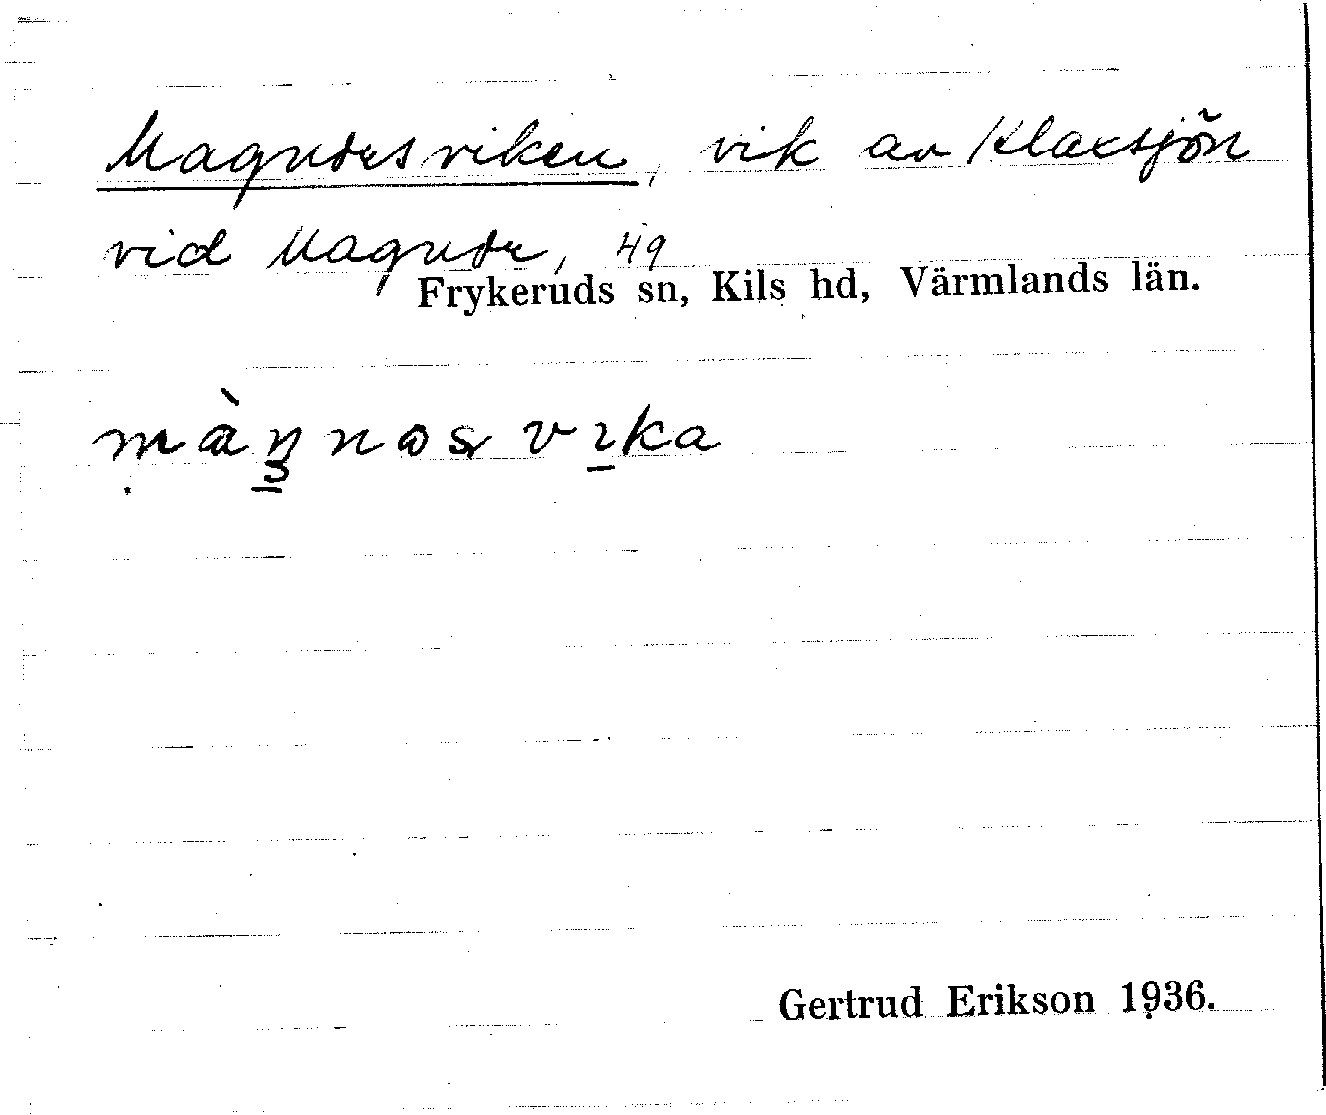 Magnebsviken, vik av Klaxsjön
vid Magneb, 49
Frykeruds sn, Kils hd, Värmlands län.
vika
Gertrud Erikson 1936.